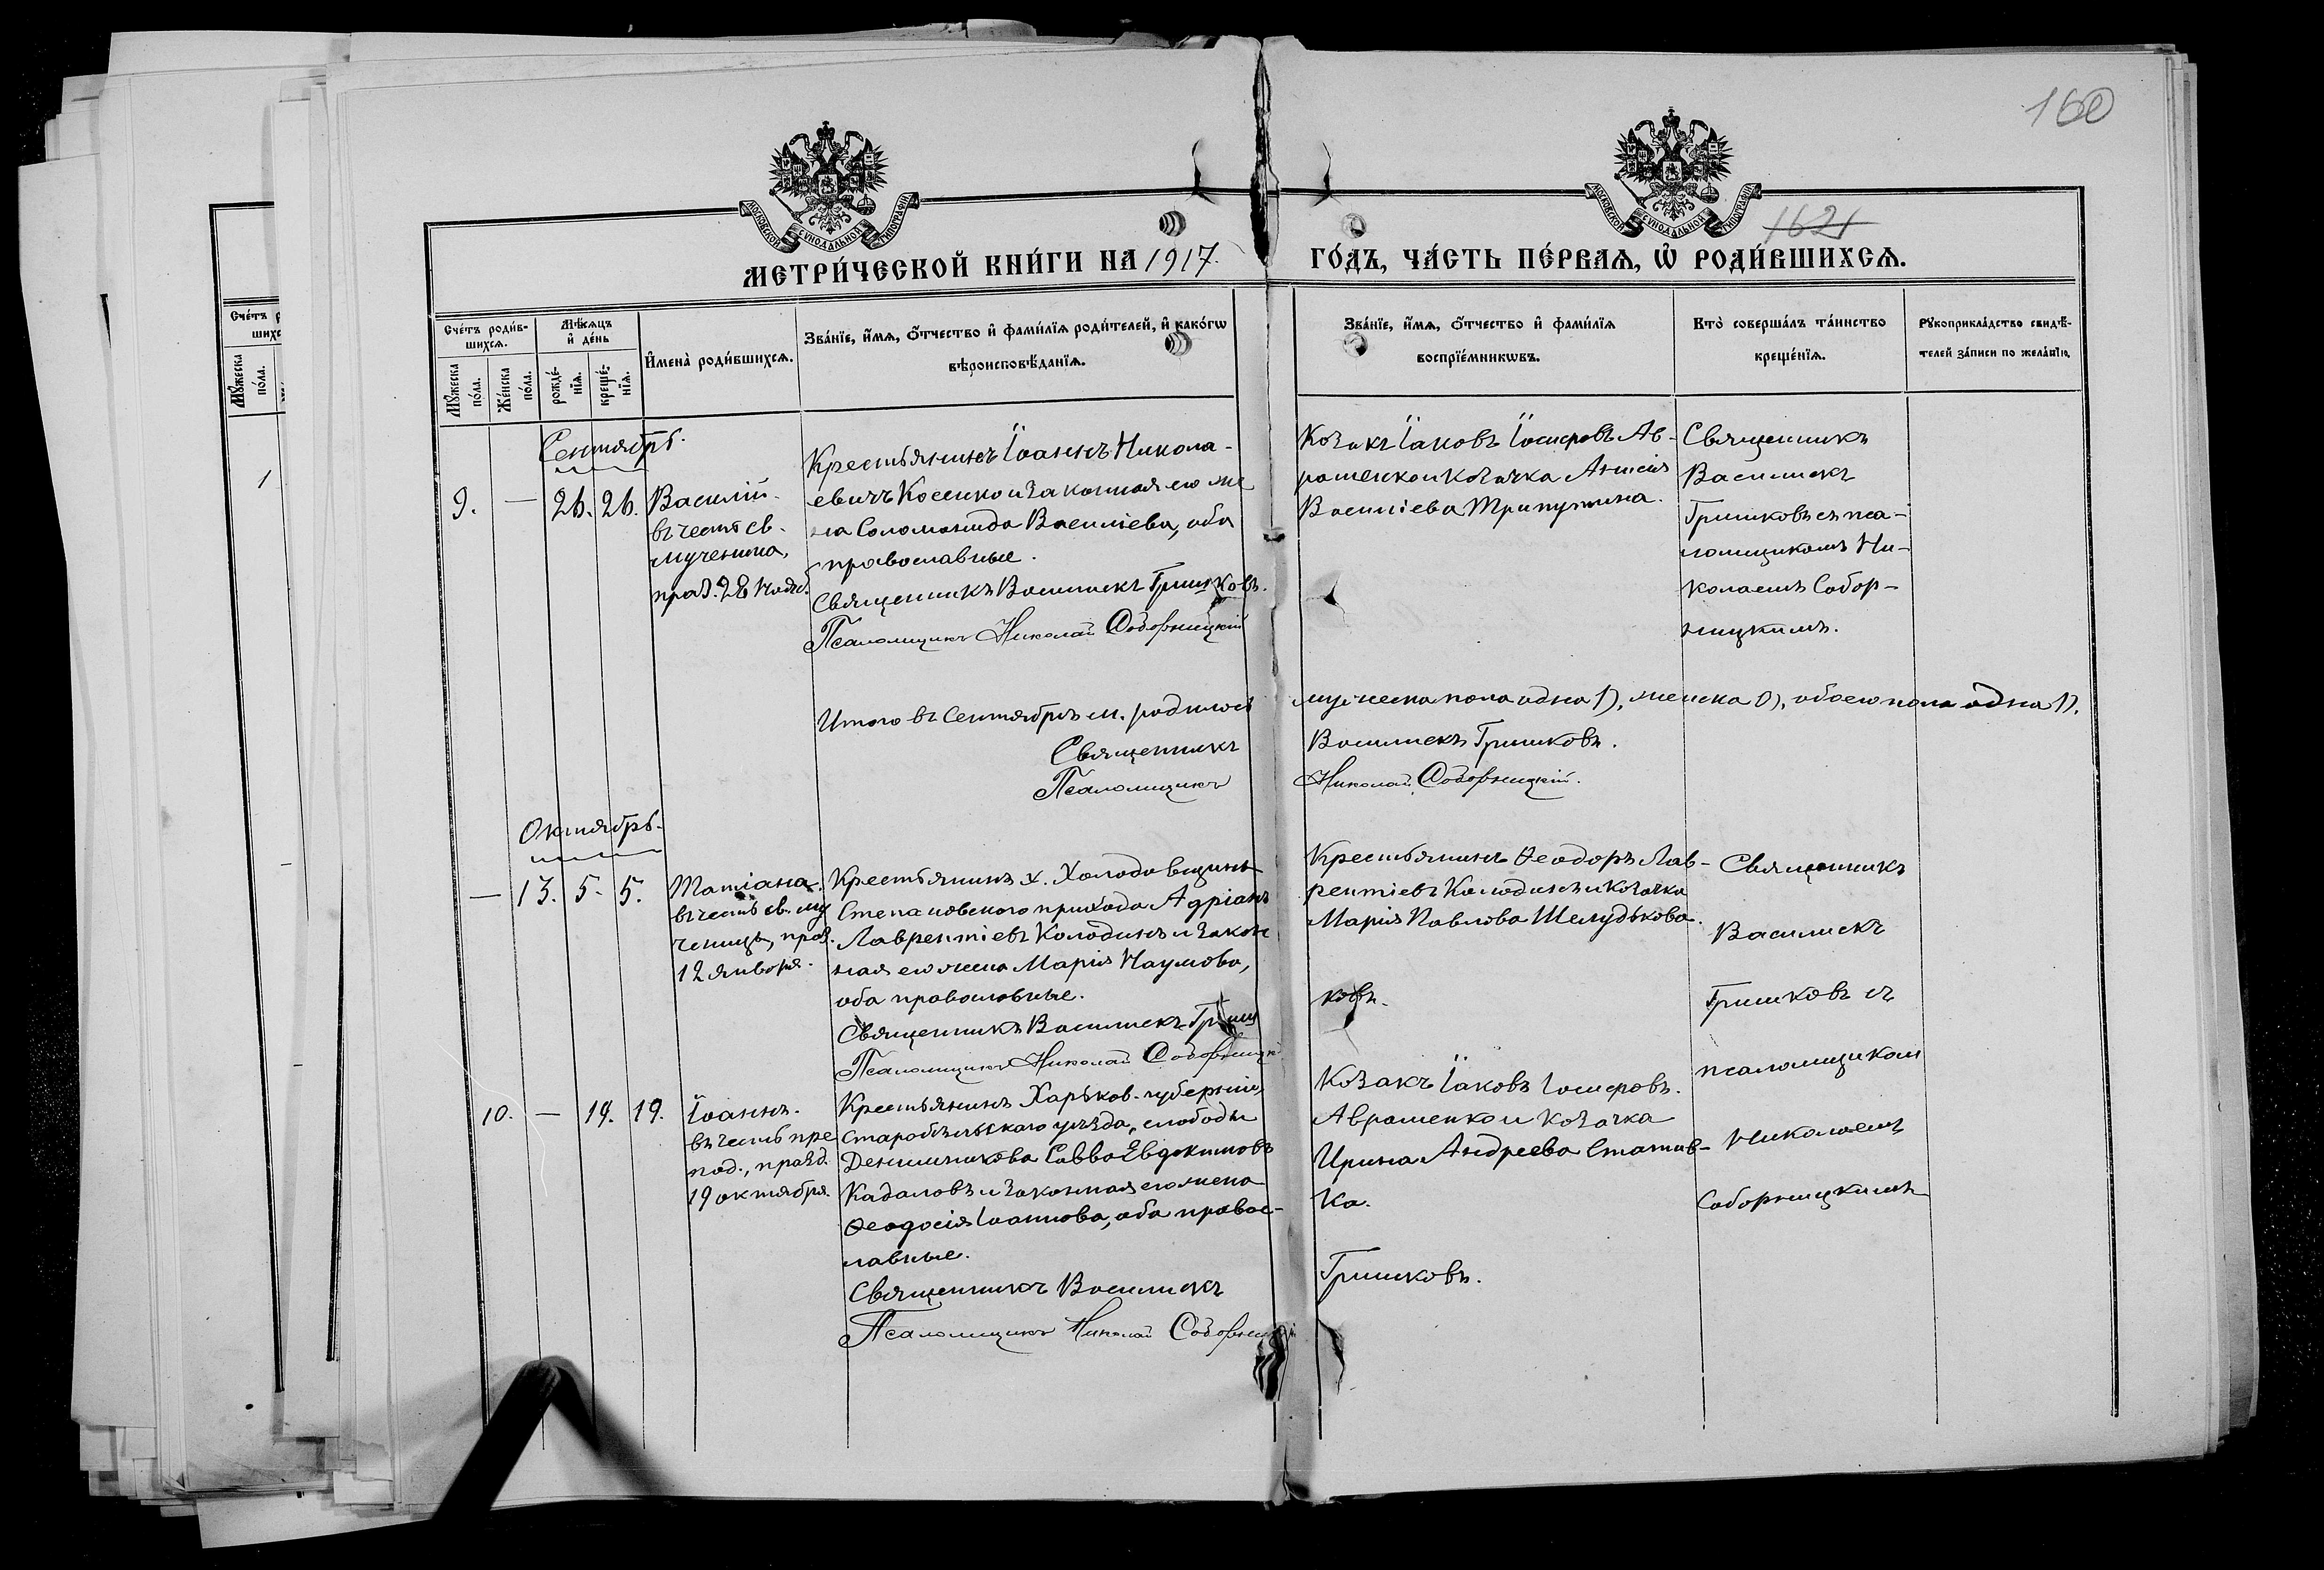 160
1621
МОСКОВСКОЙ СѴНОДАЛЬНОЙ ТИПОГРАФІИ
МОСКОВСКОЙ СѴНОДАЛЬНОЙ ТИПОГРАФІИ
МЕТРИ́ЧЕСКОЙ КНИ́ГИ НА 1917. ГО́ДЪ, ЧА́СТЬ ПЕ́РВАѦ, Ѡ҆ РОДИ́ВШИХСѦ.
Сче́тъ роди́в-
шихсѧ.
Мѣ́сѧцъ
и҆ де́нь
И҆мена̀ роди́вшихсѧ.
Зва́нїе, и҆́мѧ, ѻ҆́тчество и҆ фами́лїѧ роди́телей, и҆ како́гѡ
вѣроисповѣ́данїѧ.
Зва́нїе, и҆́мѧ, ѻ҆́тчество и҆ фами́лїѧ
воспрїе́мникѡвъ.
Кто̀ соверша́лъ та́инство
креще́нїѧ.
Рꙋкоприкла́дство свидѣ́-
телей за́писи по жела́нїю.
Мꙋ́жеска
по́ла.
Же́нска
по́ла.
рожде́-
нїѧ.
креще́-
нїѧ.
Сче́тъ
Мꙋ́жеска
по́ла.
1
Сентябрь.
9. — 26. 26.
Василій.
въ честь св.
мученика,
празд. 28 нояб.
Крестьянинъ Іоаннъ Никола-
евичъ Косенко и законная его же
на Соломонида Василіева, оба
православные.
Священникъ Василискъ Гришковъ.
Псаломщикъ Николай Соборницкій
Козакъ Іаковъ Іосифовъ Ав-
раменко и козачка Анисія
Василіева Трипутина.
Священникъ
Василискъ
Гришковъ съ пса-
ломщикомъ Ни-
колаемъ Собор-
ницкимъ.
Итого въ Сентябрѣ м. родилось мужеска пола одна 1), женска 0), обоего пола одна 1).
Священникъ Василискъ Гришковъ.
Псаломщикъ Николай Соборницкій.
Октябрь.
— 13. 5. 5.
Татіана.
въ честь св. му
ченицы, празд.
12 января.
Крестьянинъ х. Холодовщины
Степановского прихода Адріанъ
Лаврентіевъ Колодинъ и закон
ная его жена Марія Наумова,
оба православные.
Священникъ Василискъ Гриш
ковъ.
Псаломщикъ Николай Соборницкі
Крестьянинъ Ѳеодоръ Лав-
рентіевъ Колодинъ и козачка
Марія Павлова Шелудькова.
Священникъ
Василискъ
Гришковъ съ
псаломщиком
Николаемъ
Соборницкимъ
10. — 19. 19.
Іоаннъ.
въ честь пре
под., празд.
19 октября.
Крестьянинъ Харьков. губерніи,
Старобѣльскаго уѣзда, слободы
Денежникова Савва Евдокимовъ
Кадаловъ и законная его жена
Ѳеодосія Іоаннова, оба правос-
лавные.
Священникъ Василискъ Гришковъ.
Псаломщикъ Николай Соборницкій
Козакъ Іаковъ Іосифовъ.
Авраменко и козачка
Ирина Андреева Статив-
ка.